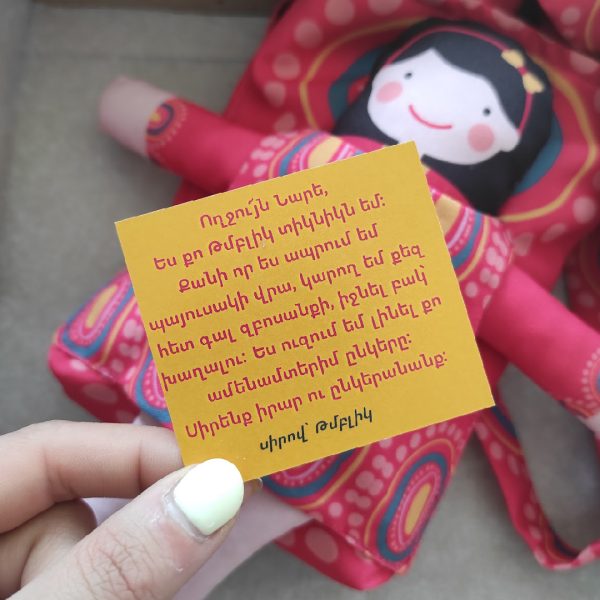 Ողջո՜ւյն Նարե,
Ես քո Թմբլիկ տիկնիկն եմ:
Քանի որ ես ապրում եմ
պայուսակի վրա, կարող եմ քեզ
հետ գալ զբոսանքի, իջնել բակ՝
խաղալու: Ես ուզում եմ լինել քո
ամենամտերիմ ընկերը:
Սիրենք իրար ու ընկերանանք:
սիրով՝ Թմբլիկ